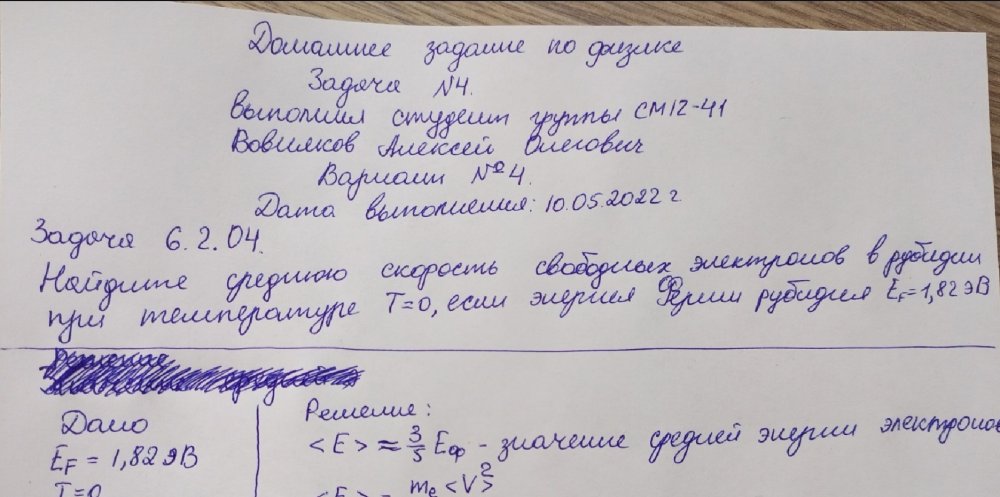 Домашнее задание по физике
Задача №4.
Выполнил студент группы СМ12-41
Вовиков Алексей Олегович
Вариант №4.
Дата выполнения: 10.05.2022 г
Задача 6.2.04.
Найдите среднюю скорость свободных электронов в рубидии
при температуре T=0, если энергия Ферми рубидия E_F=1,82 эВ
Решение:
Дано
<E> ≈ 3/5 E_Ф - значение средней энергии электронов
E_F = 1,82 эВ
T=0
<E> = m_e <V>²